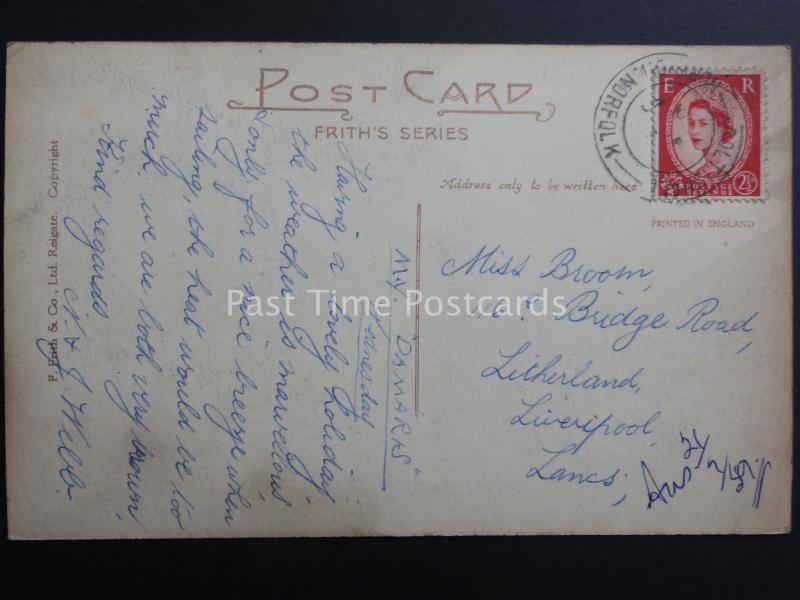 POST CARD
FRITH'S SERIES
Address only to be written here
PRINTED IN ENGLAND
E R
POSTAGE
REVENUE
2½D
NORFOLK
F. Frith & Co., Ltd. Reigate. Copyright
M.V. "DAMARIS"
Wednesday
Having a lovely holiday,
the weather is marvelous
& only for a nice breeze when
sailing, the heat would be too
much we are both very brown,
Kind regards
N & J Webb.
Miss Broom,
Bridge Road,
Litherland,
Liverpool,
Lancs;
Past Time Postcards